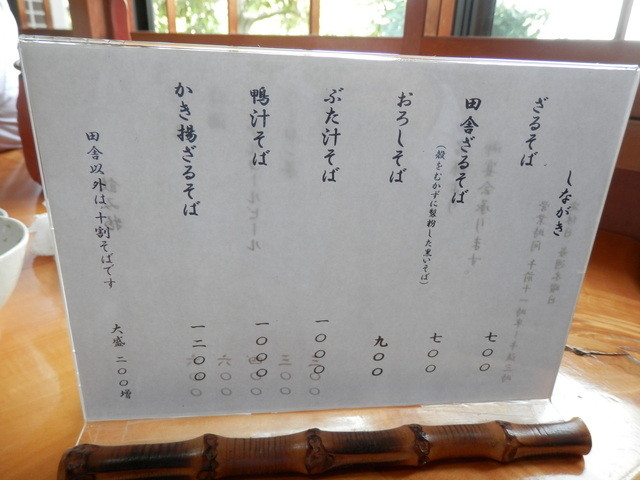 しながき
ざるそば 七〇〇
田舎ざるそば 七〇〇
(殻をむかずに製粉した黒いそば)
おろしそば 九〇〇
ぶた汁そば 一〇〇〇
鴨汁そば 一〇〇〇
かき揚ざるそば 一二〇〇
田舎以外は十割そばです
大盛 二〇〇増